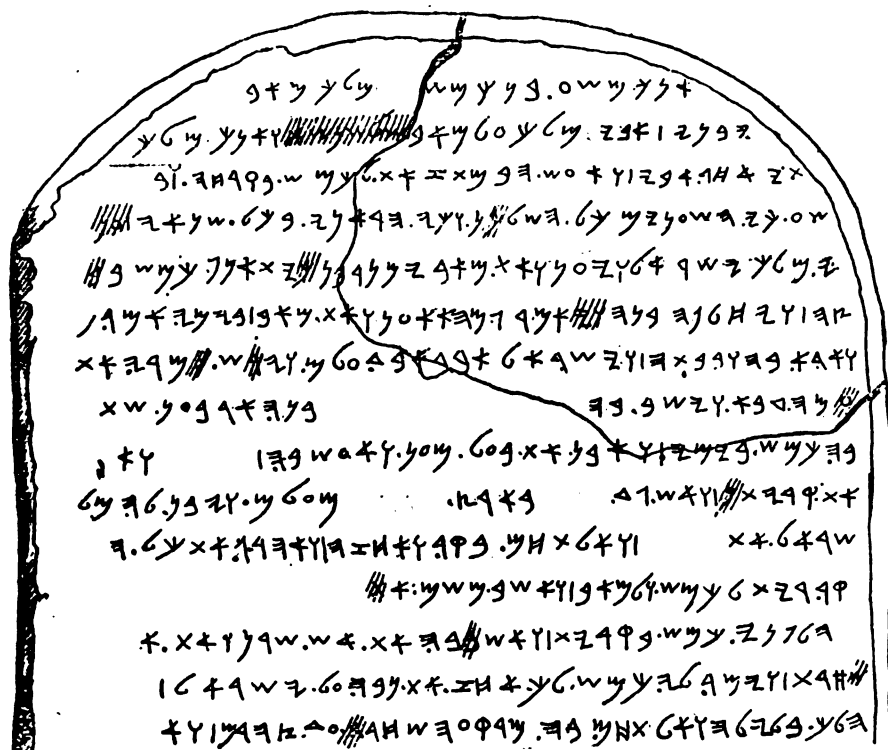 𐤀𐤍𐤊.𐤌𐤔𐤏.𐤁𐤍.𐤊𐤌𐤔 𐤌𐤋𐤊.𐤌𐤀𐤁
𐤉𐤁𐤍𐤉|𐤀𐤁𐤉.𐤌𐤋𐤊.𐤏𐤋.𐤌𐤀𐤁 𐤅𐤀𐤍𐤊.𐤌𐤋𐤊
𐤕𐤉.𐤀𐤇𐤓.𐤀𐤁𐤉|𐤅𐤀𐤏𐤔.𐤄𐤁𐤌𐤕.𐤆𐤀𐤕.𐤋𐤊𐤌𐤔.𐤁𐤒𐤓𐤇𐤄.
𐤔𐤏.𐤊𐤉.𐤄𐤔𐤏𐤍𐤉.𐤌𐤊𐤋.𐤄𐤔𐤋 𐤊𐤍.𐤅𐤊𐤉.𐤄𐤓𐤀𐤍𐤉.𐤁𐤊𐤋.𐤔𐤍𐤀𐤉
𐤉.𐤌𐤋𐤊.𐤉𐤔𐤓𐤀𐤋.𐤅𐤉𐤏𐤍𐤅.𐤀𐤕.𐤌𐤀𐤁.𐤉𐤌𐤍.𐤓𐤁𐤍 𐤉𐤕𐤀𐤍𐤐.𐤊𐤌𐤔.𐤁
𐤓𐤑𐤄|𐤅𐤉𐤇𐤋𐤐𐤄.𐤁𐤍𐤄 𐤀𐤌𐤓.𐤂𐤌.𐤄𐤀.𐤀𐤏𐤍𐤅.𐤀𐤕.𐤌𐤀𐤁|𐤁𐤉𐤌𐤉.𐤀𐤌𐤓
𐤅𐤀𐤓𐤀.𐤁𐤄.𐤅𐤁𐤁𐤕𐤄|𐤅𐤉𐤔𐤓𐤀𐤋.𐤀𐤁𐤃.𐤀𐤁𐤃.𐤏𐤋𐤌.𐤅𐤉 𐤔. 𐤌𐤓𐤉.𐤀𐤕
𐤄𐤃𐤁𐤀.𐤅𐤉𐤔𐤁.𐤁𐤄 𐤁𐤍𐤄.𐤀𐤓𐤁𐤏𐤍.𐤔𐤕
𐤁𐤄.𐤊𐤌𐤔.𐤁𐤉𐤌𐤉|𐤅𐤀𐤁𐤍.𐤀𐤕.𐤁𐤏𐤋𐤌𐤏𐤍.𐤅𐤀𐤏𐤔.𐤁𐤄| 𐤅𐤀
𐤀𐤕.𐤒𐤓𐤉𐤕𐤍|𐤅𐤀𐤔.𐤂𐤃. 𐤁𐤀𐤓𐤑. 𐤌𐤏𐤋𐤌.𐤅𐤉𐤁𐤍.𐤋𐤄.𐤌𐤋
𐤔𐤓𐤀𐤋.𐤀𐤕 |𐤅𐤀𐤋𐤕𐤇𐤌.𐤁𐤒𐤓|𐤅𐤀𐤇𐤆𐤄|𐤅𐤀𐤄𐤓𐤂.𐤀𐤕.𐤊𐤋.𐤄
𐤒𐤓.𐤓𐤉𐤕.𐤋𐤊𐤌𐤔.𐤅𐤋𐤌𐤀𐤁|𐤅𐤀𐤔𐤁.𐤌𐤔𐤌.𐤀
𐤄𐤐𐤍𐤉.𐤊𐤌𐤔.𐤁𐤒𐤓𐤉𐤕|𐤅𐤀𐤔 𐤁𐤄.𐤀𐤕.𐤀𐤔.𐤔𐤓𐤍.𐤅𐤀𐤕.𐤀
𐤌𐤇𐤓𐤕|𐤅𐤉𐤀𐤌𐤓.𐤋𐤉.𐤊𐤌𐤔.𐤋𐤊.𐤀𐤇𐤆.𐤀𐤕.𐤍𐤁𐤄.𐤏𐤋.𐤉𐤔𐤓𐤀𐤋|
𐤄𐤋𐤊.𐤁𐤋𐤋𐤄.𐤅𐤀𐤋𐤕𐤇𐤌.𐤁𐤄.𐤌𐤁𐤒𐤏.𐤄𐤔𐤇𐤓 𐤏𐤃.𐤄𐤑𐤄𐤓𐤌|𐤅𐤀